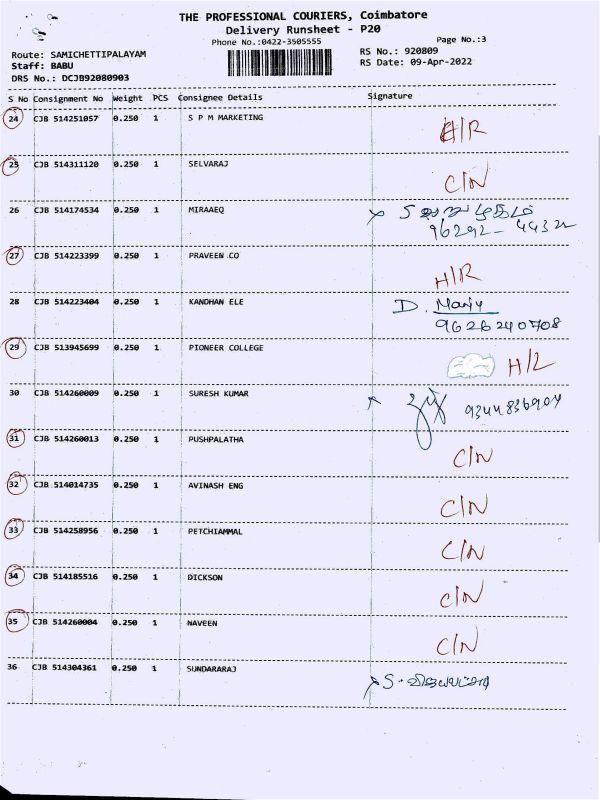 THE PROFESSIONAL COURIERS, Coimbatore
Delivery Runsheet - P20
Phone No.:0422-3505555
Page No.:3
Route: SAMICHETTIPALAYAM
RS No.: 920809
Staff: BABU
RS Date: 09-Apr-2022
DRS No.: DCJB92080903
S No Consignment No Weight PCS Consignee Details Signature
24 CJB 514251057 0.250 1 S P M MARKETING
H/R
25 CJB 514311120 0.250 1 SELVARAJ
C/N
26 CJB 514174534 0.250 1 MIRAAEQ
27 CJB 514223399 0.250 1 PRAVEEN CO
H/R
28 CJB 514223404 0.250 1 KANDHAN ELE D.
9626240708
29 CJB 513945699 0.250 1 PIONEER COLLEGE
30 CJB 514260009 0.250 1 SURESH KUMAR
31 CJB 514260013 0.250 1 PUSHPALATHA
C/N
32 CJB 514014735 0.250 1 AVINASH ENG
C/N
33 CJB 514258956 0.250 1 PETCHIAMMAL
C/N
34 CJB 514185516 0.250 1 DICKSON
C/N
35 CJB 514260004 0.250 1 NAVEEN
C/N
36 CJB 514304361 0.250 1 SUNDARARAJ